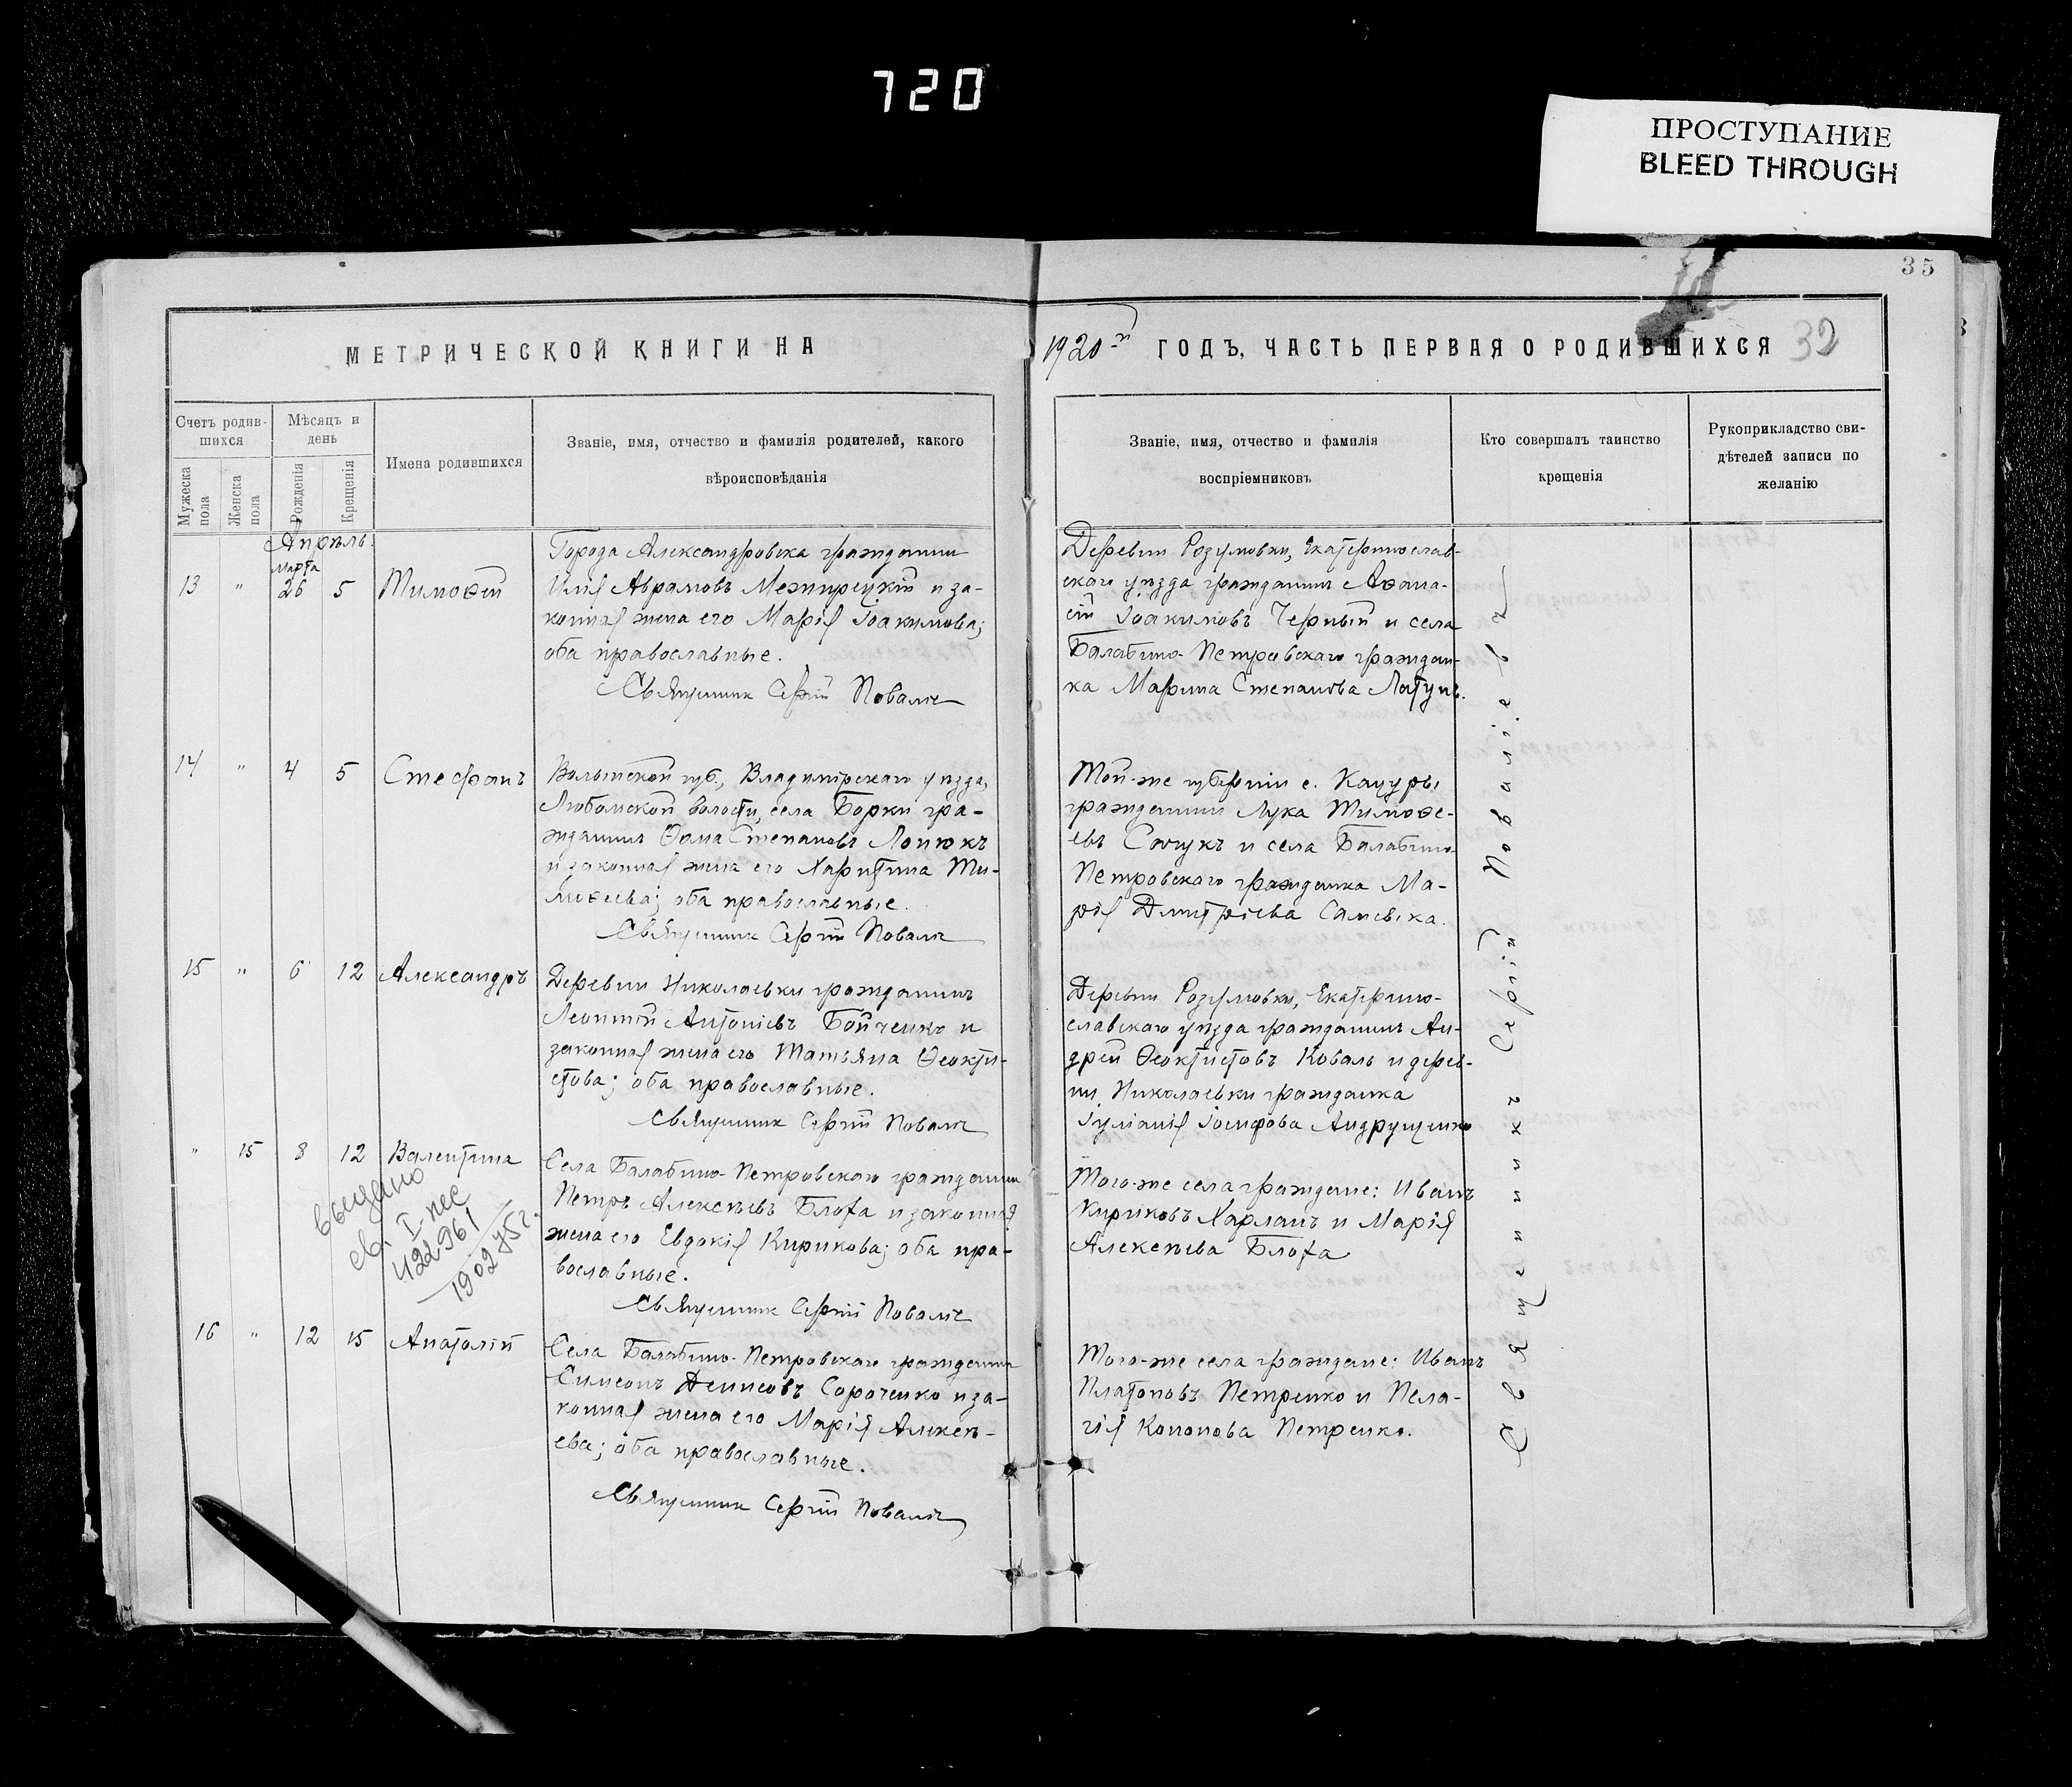 720
ПРОСТУПАНИЕ
BLEED THROUGH
35
МЕТРИЧЕСКОЙ КНИГИ НА
1920й ГОДЪ, ЧАСТЬ ПЕРВАЯ О РОДИВШИХСЯ 32
Счетъ родив-
шихся
Мѣсяцъ и
день
Имена родившихся
Званіе, имя, отчество и фамилія родителей, какого
вѣроисповѣданія
Мужеска пола
Женска пола
Рожденія
Крещенія
Званіе, имя, отчество и фамилія
воспріемниковъ
Кто совершалъ таинство
крещенія
Рукоприкладство сви-
дѣтелей записи по
желанію
Апрѣль.
Марта
13 " 26 5 Тимоѳей
Города Александровска гражданинъ
Илія Аврамовъ Межирецкій и за-
конная жена его Марія Іоакимова;
оба православные.
Священник Сергій Повалiевъ
Деревни Розумовки, Екатеринослав-
скаго уѣзда гражданинъ Аѳана-
сій Іоакимовъ Черный и села
Балабино-Петровскаго граждан-
ка Марина Степанова Латунъ.
14 " 4 5 Стефанъ
Волынской губ., Владимірскаго уѣзда,
Любомской волости, села Борки гра-
жданинъ Ѳома Степановъ Лопюкъ
и законная жена его Харитина Ти-
моѳеева; оба православные.
Священник Сергій Повалiевъ
Той-же губерніи с. Кацуры
гражданинъ Лука Тимоѳе-
евъ и села Балабино-
Петровскаго гражданка Ма-
рія Дмитріева
15 " 6 12 Александръ
Деревни Николаевки гражданинъ
Леонтій Антоніевъ Бойченко и
законная жена его Татьяна Ѳеокти-
стова; оба православные.
Священник Сергій Повалiевъ
Деревни Розумовки, Екатерино-
славскаго уѣзда гражданинъ Ан-
дрей Ѳеоктистовъ Коваль и дерев-
ни Николаевки гражданка
Іуліанія Іосифова Андрущенко
" 15 8 12 Валентина
Села Балабино-Петровскаго гражданинъ
Петръ Алексѣевъ Блоха и законная
жена его Евдокія Кирикова; оба пра-
вославные.
Священник Сергій Повалiевъ
Того-же села граждане: Иванъ
Кириковъ Харланъ и Марія
Алексѣева Блоха
выдано
св. I-пес
422961
1902 75г.
16 " 12 15 Анатолій
Села Балабино-Петровскаго гражданинъ
Симеонъ Денисовъ Сороченко и за-
конная жена его Марія Алексѣ-
ева; оба православные.
Священник Сергій Повалiевъ
Того-же села граждане: Иванъ
Платоновъ Петренко и Пела-
гія Кононова Петренко.
Священникъ Сергій Поваліевъ